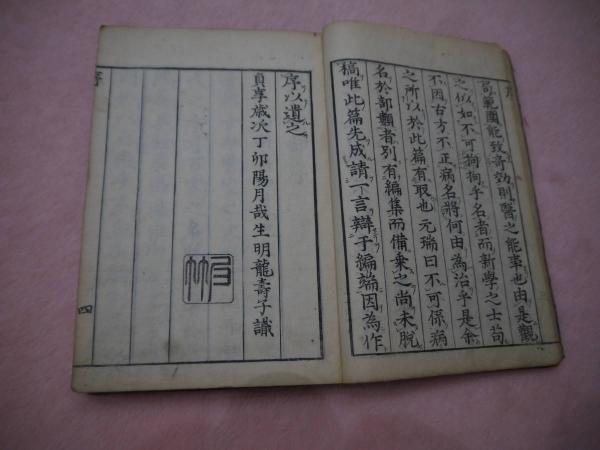 範圍能致奇効則醫之能事也由是觀
之似如不可拘拘乎名者而新學之士苟
不因古方不正病名將何由為治乎是余
之所以於此篇有取也元瑞曰不可保病
名於部類者別有編集而備乗之尚未脫
稿唯此篇先成請一言辯于編端因為作
序以遺之
貞享歲次丁卯陽月哉生明龍壽子識
四